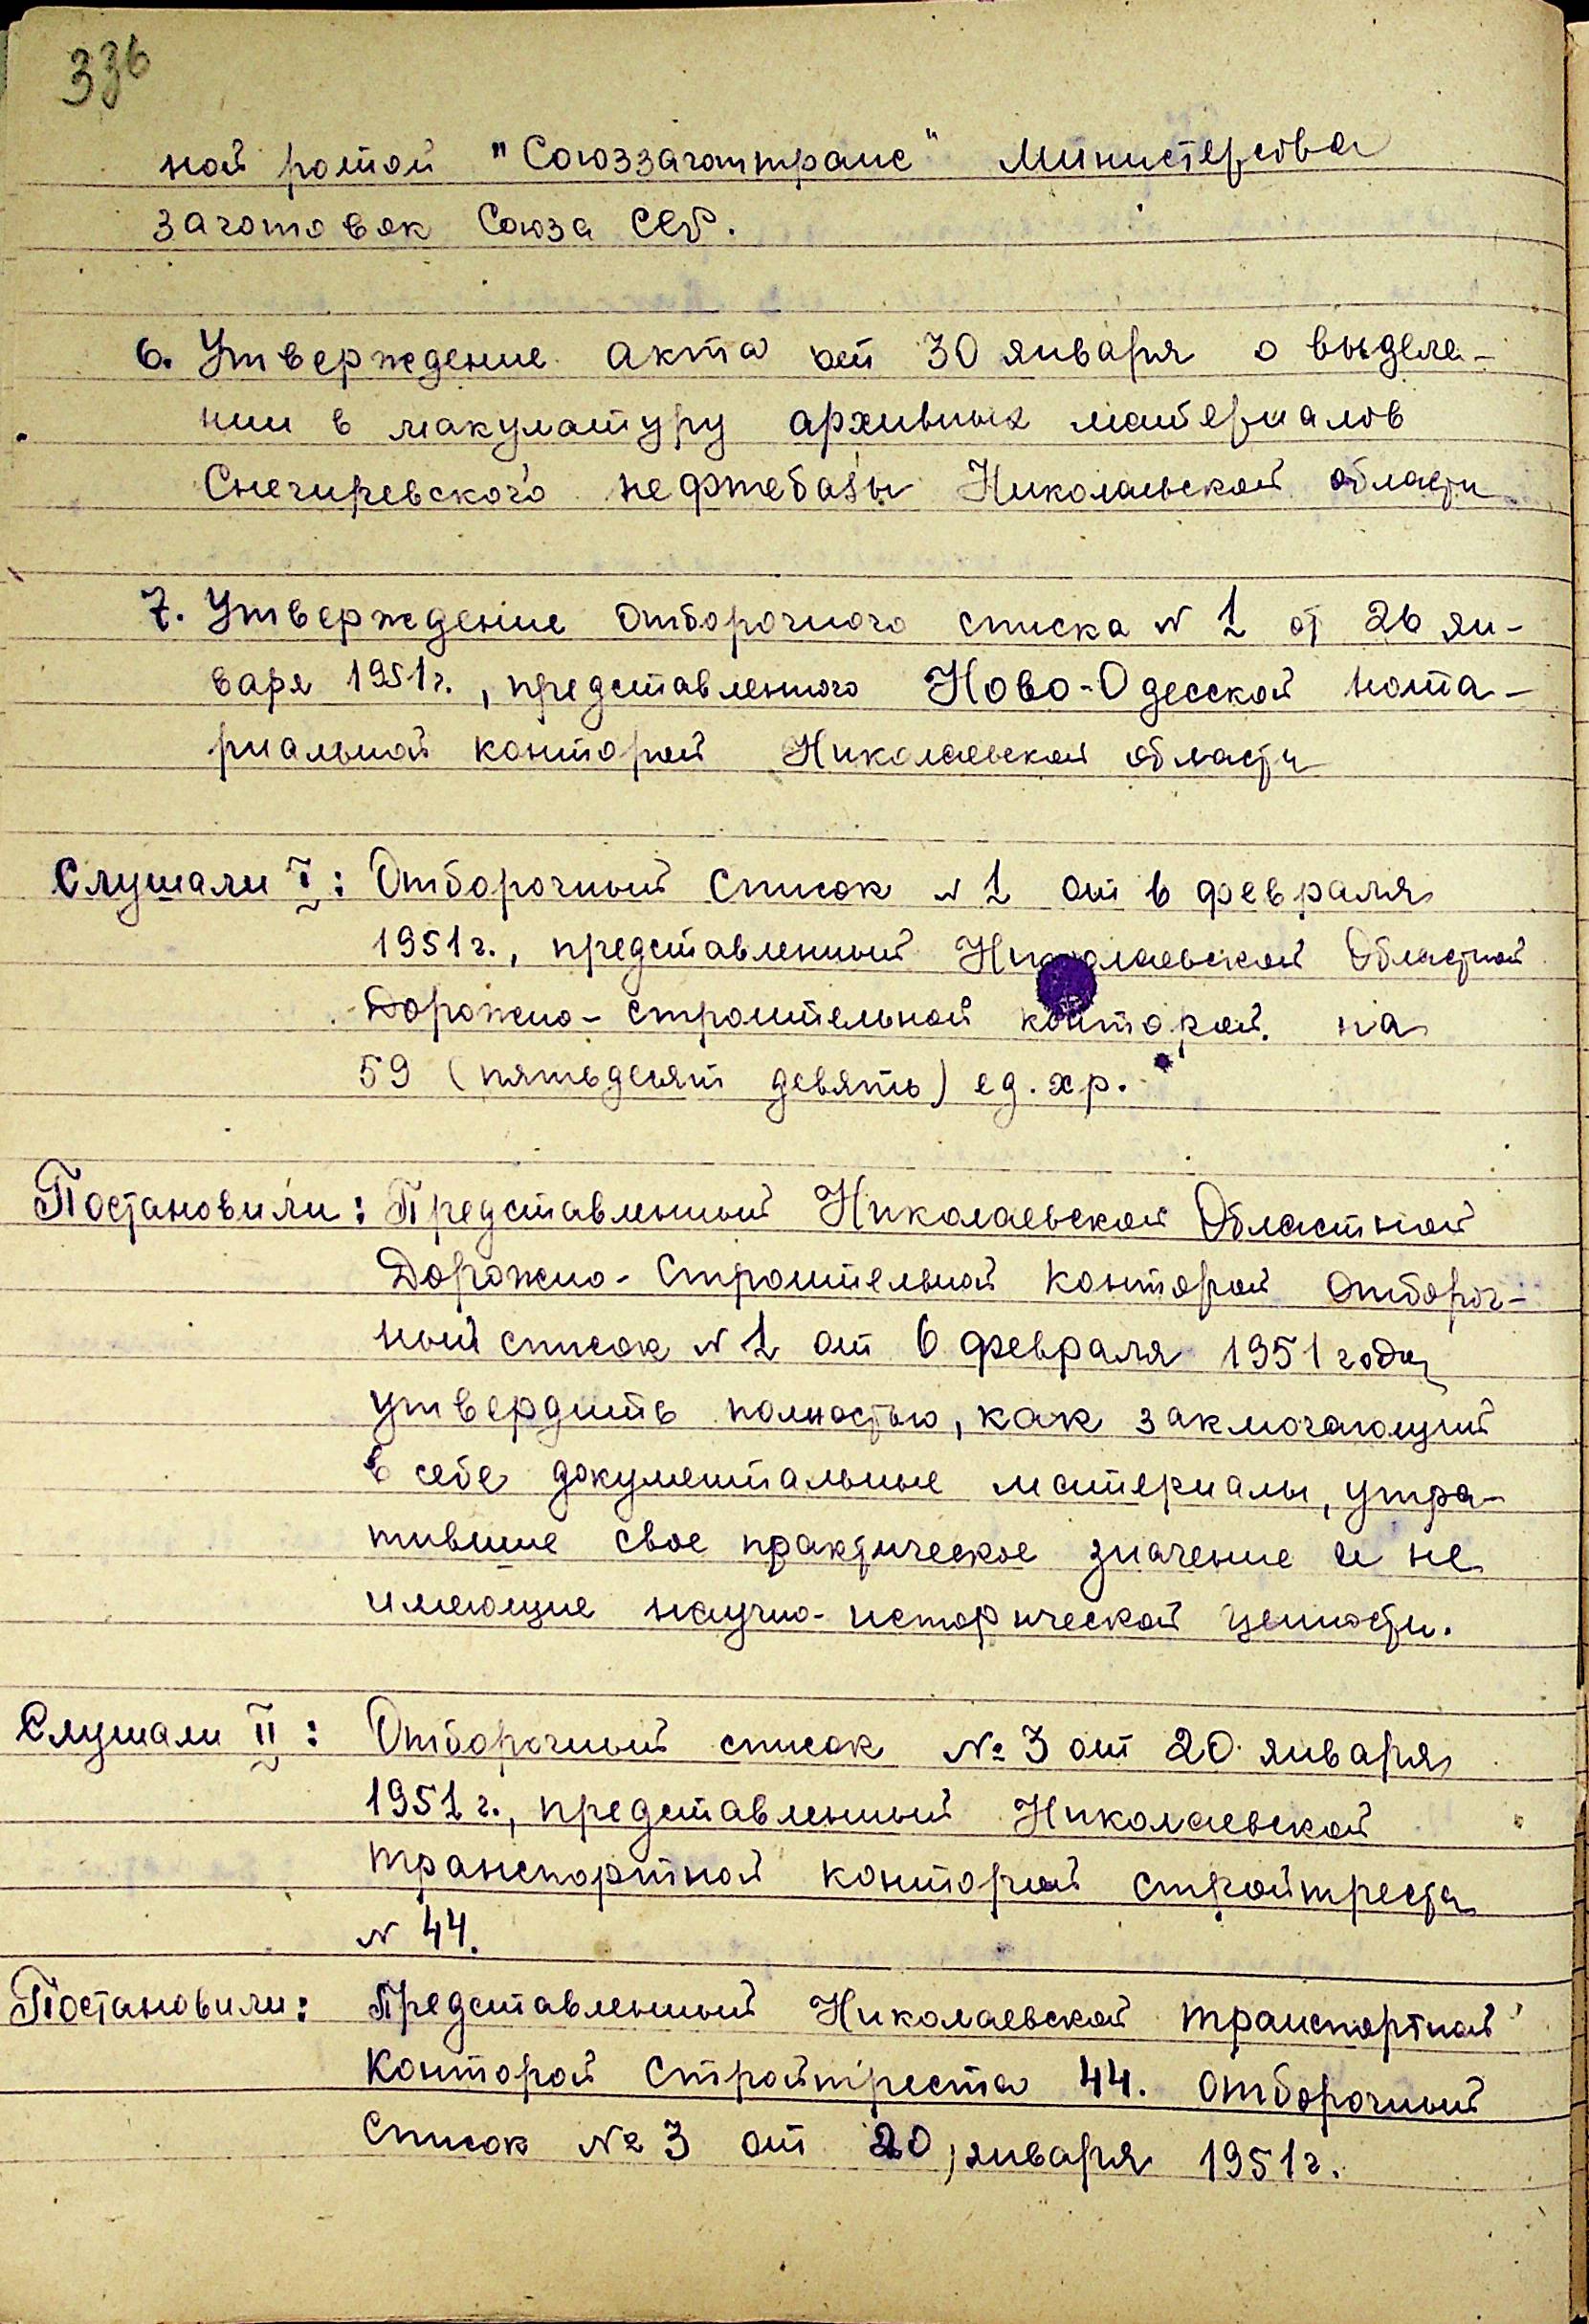 336
ной ротой "Союззаготтранс" Министерства
заготовок Союза ССР.
6. Утверждение акта от 30 января о выделе-
нии в макулатуру архивных материалов
Снегиревского нефтебазы Николаевской области
7. Утверждение отборочного списка N 1 от 26 ян-
варя 1951 г., представленного Ново-Одесской нота-
риальной конторой Николаевской области
Слушали I: Отборочный список N 1 от 6 февраля
1951 г., представленный Николаевской Областной
Дорожно-строительной конторой на
59 (пятьдесят девять) ед. хр.
Постановили: Представленный Николаевской Областной
Дорожно-Строительной конторой отбороч-
ный список N 1 от 6 февраля 1951 года
утвердить полностью, как заключающий
в себе документальные материалы, утра-
тившие свое практическое значение и не
имеющие научно-исторической ценности.
Слушали II: Отборочный список № 3 от 20 января
1951 г., представленный Николаевской
транспортной конторой стройтреста
N 44.
Постановили: Представленный Николаевской транспортной
конторой Стройтреста 44. отборочный
список № 3 от 20 января 1951 г.